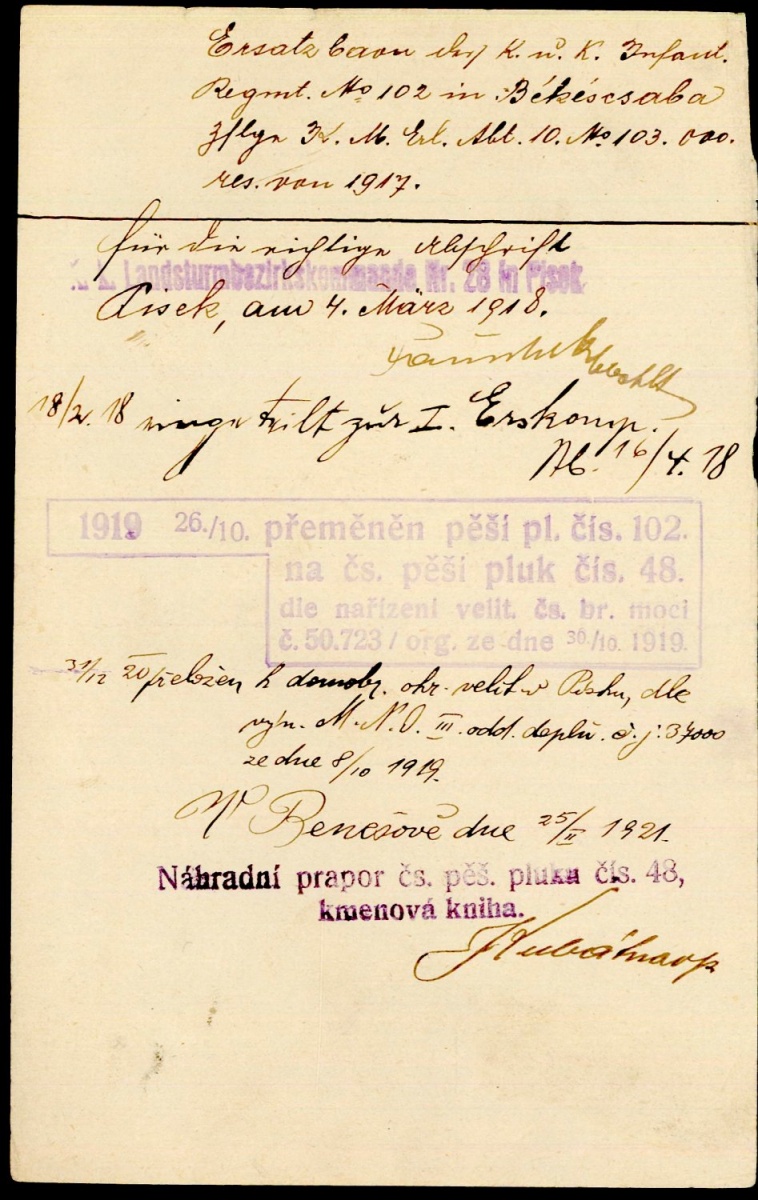 Ersatzbaon des K. u. K. Infant.
Regmt. No 102 in Békéscsaba
zflge K. M. Erl. Abt. 10. No 103.000.
res. von 1917.
für die richtige Abschrift
K. K. Landsturmbezirkskommando Nr. 28 in Pisek
Pisek, am 4. März 1918.
18/2. 18 eingeteilt zur I. Erskomp.
16/4. 18
1919 26./10. přeměněn pěší pl. čís. 102.
na čs. pěší pluk čís. 48.
dle nařízení velit. čs. br. moci
č. 50.723 / org. ze dne 30./10. 1919.
31/12 20 přeložen k domobr. okr. velit. v Písku, dle
výn. M. N. O. III. odd. doplň. č. j. 37000
ze dne 8/10 1919.
V Benešově dne 25/II 1921.
Náhradní prapor čs. pěš. pluku čís. 48,
kmenová kniha.